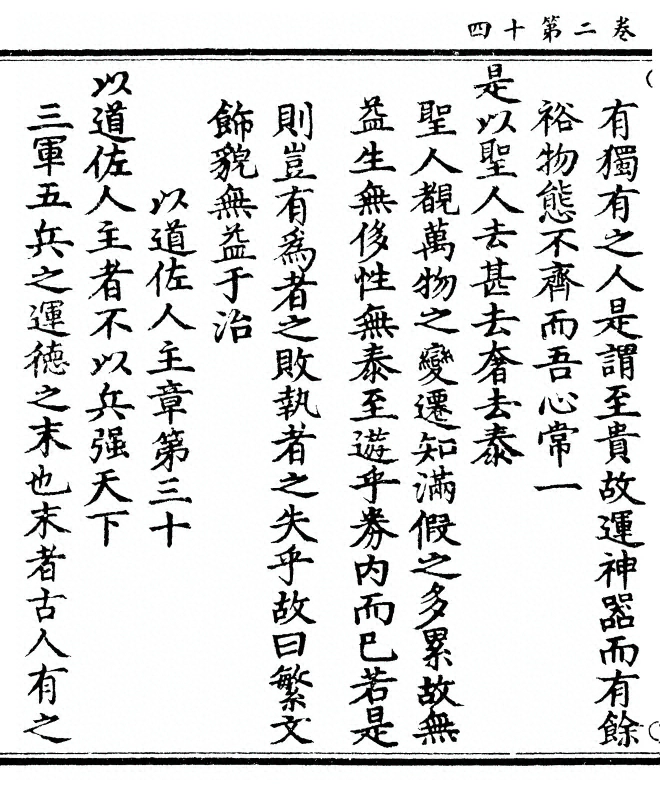 卷二第十四
有獨有之人是謂至貴故運神器而有餘
裕物態不齊而吾心常一
是以聖人去甚去奢去泰
聖人覩萬物之變遷知滿假之多累故無
益生無侈性無泰至遊乎券內而已若是
則豈有為者之敗執者之失乎故曰繁文
飾貌無益于治
以道佐人主章第三十
以道佐人主者不以兵强天下
三軍五兵之運德之末也末者古人有之